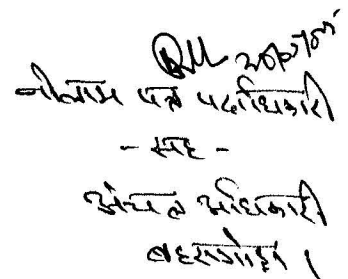 नीलाम पत्र पदाधिकारी
- सह -
अंचल अधिकारी
बहरागोड़ा।